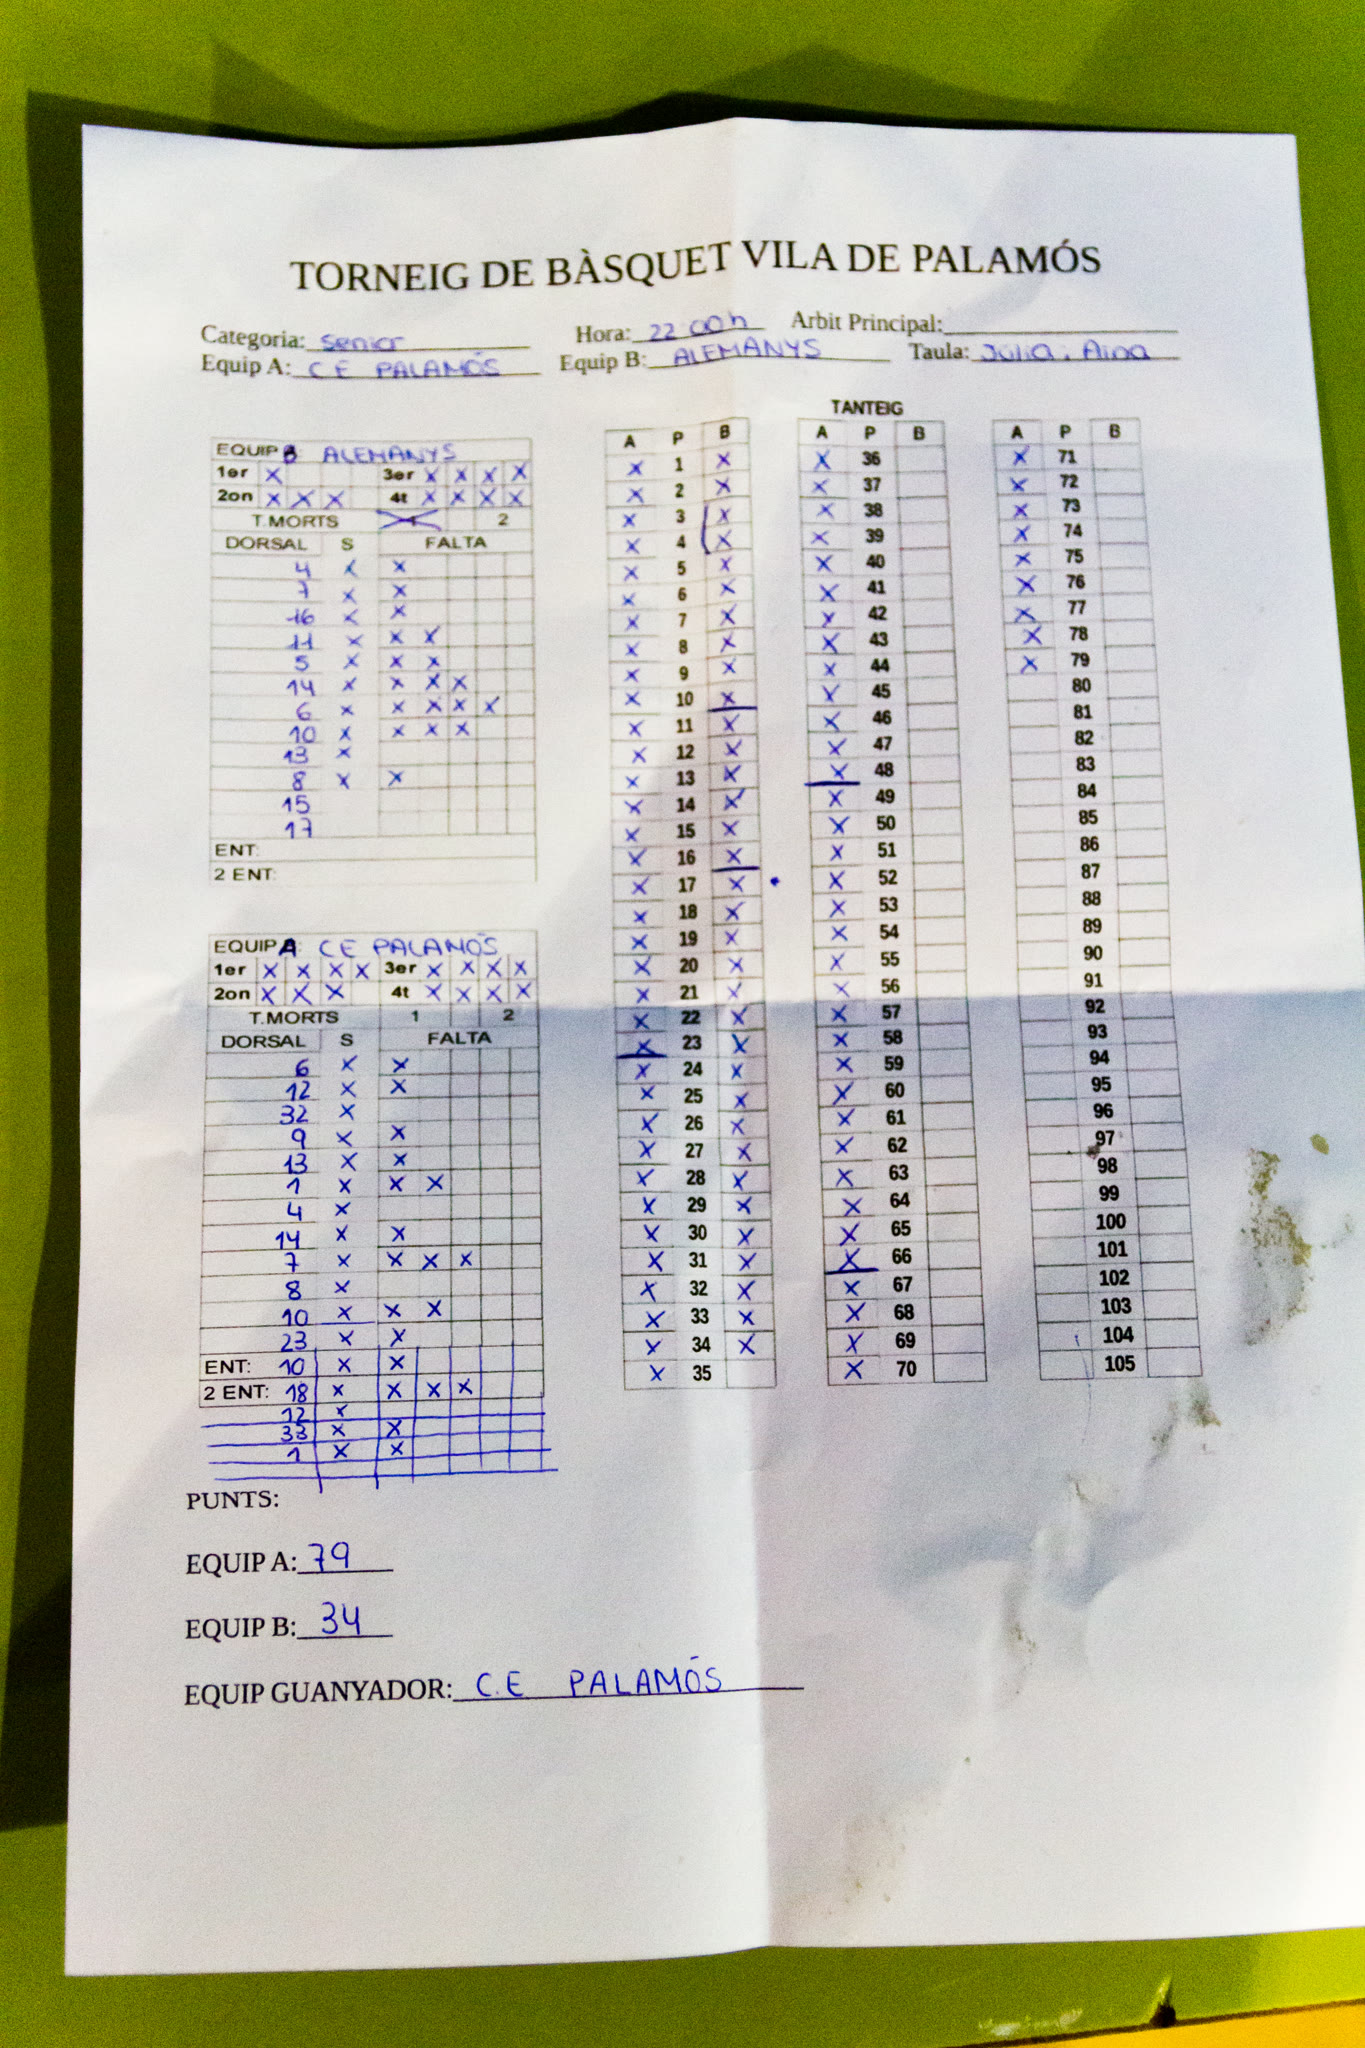 TORNEIG DE BÀSQUET VILA DE PALAMÓS
Categoria: senior Hora: 22 00 h Arbit Principal:
Equip A: C E PALAMÓS Equip B: ALEMANYS Taula: Júlia i Aina
TANTEIG
EQUIP B ALEMANYS
1er X 3er X X X X
2on X X X 4t X X X X
T.MORTS 1 2
DORSAL S FALTA
4 X X
7 X X
16 X X
11 X X X
5 X X X
14 X X X X
6 X X X X X
10 X X X X
13 X
8 X X
15
17
ENT:
2 ENT:
EQUIP A: CE PALAMÓS
1er X X X X 3er X X X X
2on X X X 4t X X X X
T.MORTS 1 2
DORSAL S FALTA
6 X X
12 X X
32 X
9 X X
13 X X
1 X X X
4 X
14 X X
7 X X X X
8 X
10 X X X
23 X X
ENT: 10 X X
2 ENT: 18 X X X X
12 X
33 X X
1 X X
A P B
X 1 X
X 2 X
X 3 X
X 4 X
X 5 X
X 6 X
X 7 X
X 8 X
X 9 X
X 10 X
X 11 X
X 12 X
X 13 X
X 14 X
X 15 X
X 16 X
X 17 X
X 18 X
X 19 X
X 20 X
X 21 X
X 22 X
X 23 X
X 24 X
X 25 X
X 26 X
X 27 X
X 28 X
X 29 X
X 30 X
X 31 X
X 32 X
X 33 X
X 34 X
X 35
A P B
X 36
X 37
X 38
X 39
X 40
X 41
X 42
X 43
X 44
X 45
X 46
X 47
X 48
X 49
X 50
X 51
X 52
X 53
X 54
X 55
X 56
X 57
X 58
X 59
X 60
X 61
X 62
X 63
X 64
X 65
X 66
X 67
X 68
X 69
X 70
A P B
X 71
X 72
X 73
X 74
X 75
X 76
X 77
X 78
X 79
80
81
82
83
84
85
86
87
88
89
90
91
92
93
94
95
96
97
98
99
100
101
102
103
104
105
PUNTS:
EQUIP A: 79
EQUIP B: 34
EQUIP GUANYADOR: C.E PALAMÓS